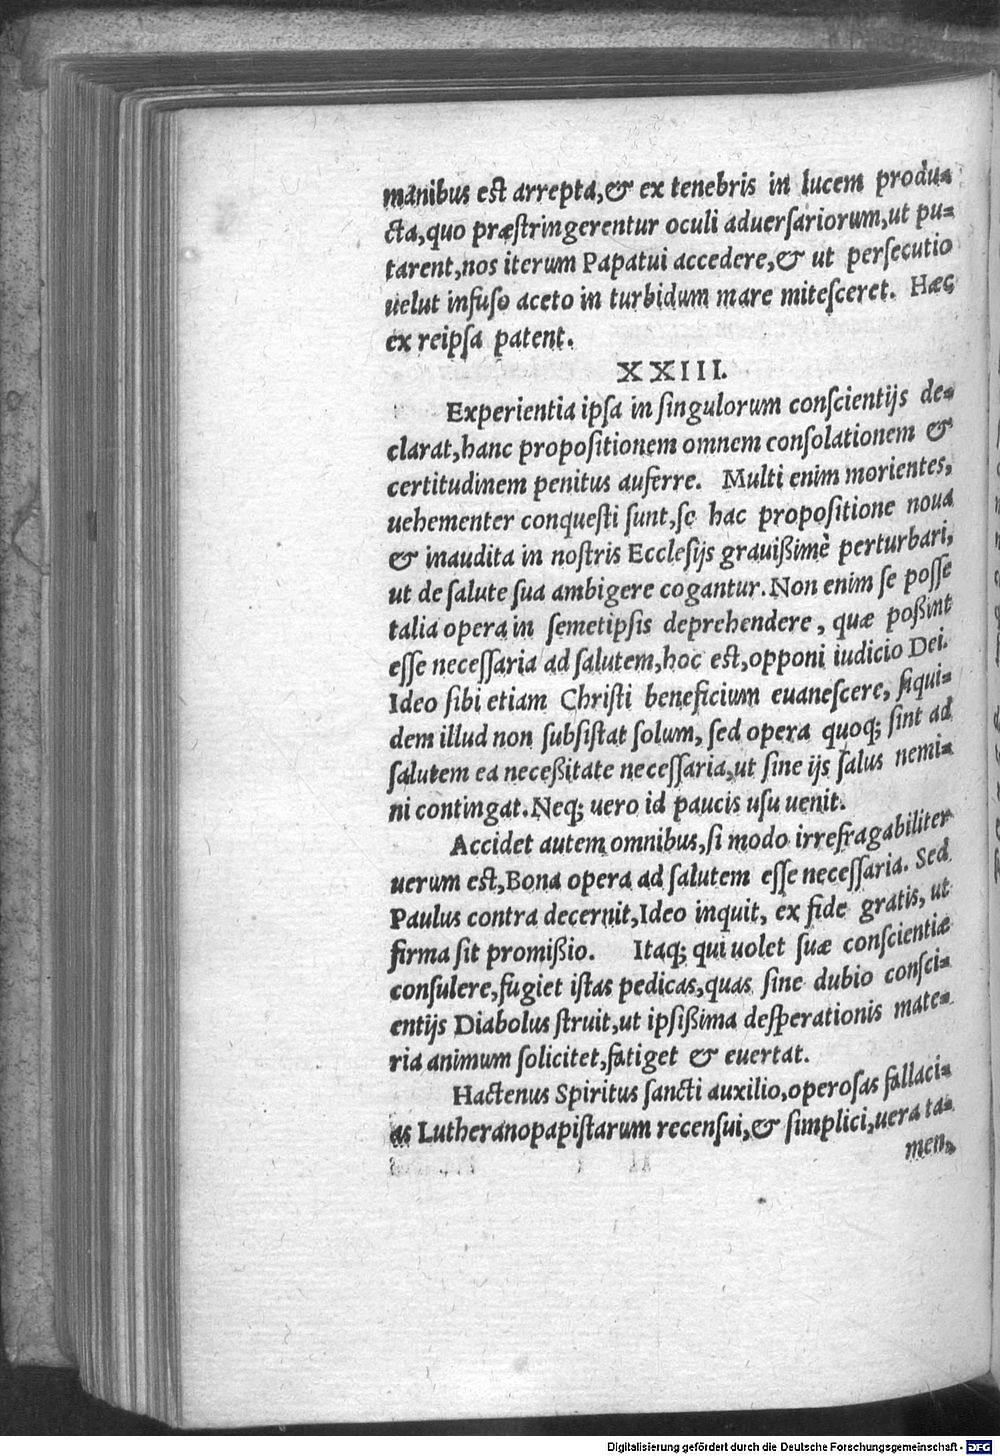 manibus est arrepta,& ex tenebris in lucem produ-
cta,quo præstringerentur oculi aduersariorum,ut pu-
tarent,nos iterum Papatui accedere,& ut persecutio
uelut infuso aceto in turbidum mare mitesceret. Hæc
ex reipsa patent.
XXIII.
Experientia ipsa in singulorum conscientijs de-
clarat,hanc propositionem omnem consolationem &
certitudinem penitus auferre. Multi enim morientes,
uehementer conquesti sunt,se hac propositione noua
& inaudita in nostris Ecclesijs grauißimè perturbari,
ut de salute sua ambigere cogantur.Non enim se posse
talia opera in semetipsis deprehendere, quæ poßint
esse necessaria ad salutem,hoc est,opponi iudicio Dei.
Ideo sibi etiam Christi beneficium euanescere, siqui-
dem illud non subsistat solum, sed opera quoq; sint ad
salutem ea neceßitate necessaria,ut sine ijs salus nemi-
ni contingat.Neq; uero id paucis usu uenit.
Accidet autem omnibus,si modo irrefragabiliter
uerum est,Bona opera ad salutem esse necessaria. Sed
Paulus contra decernit,Ideo inquit, ex fide gratis, ut
firma sit promißio. Itaq; qui uolet suæ conscientiæ
consulere,fugiet istas pedicas,quas sine dubio consci-
entijs Diabolus struit,ut ipsißima desperationis mate-
ria animum solicitet,fatiget & euertat.
Hactenus Spiritus sancti auxilio,operosas fallaci-
as Lutheranopapistarum recensui,& simplici,uera ta-
men,
Digitalisierung gefördert durch die Deutsche Forschungsgemeinschaft - DFG